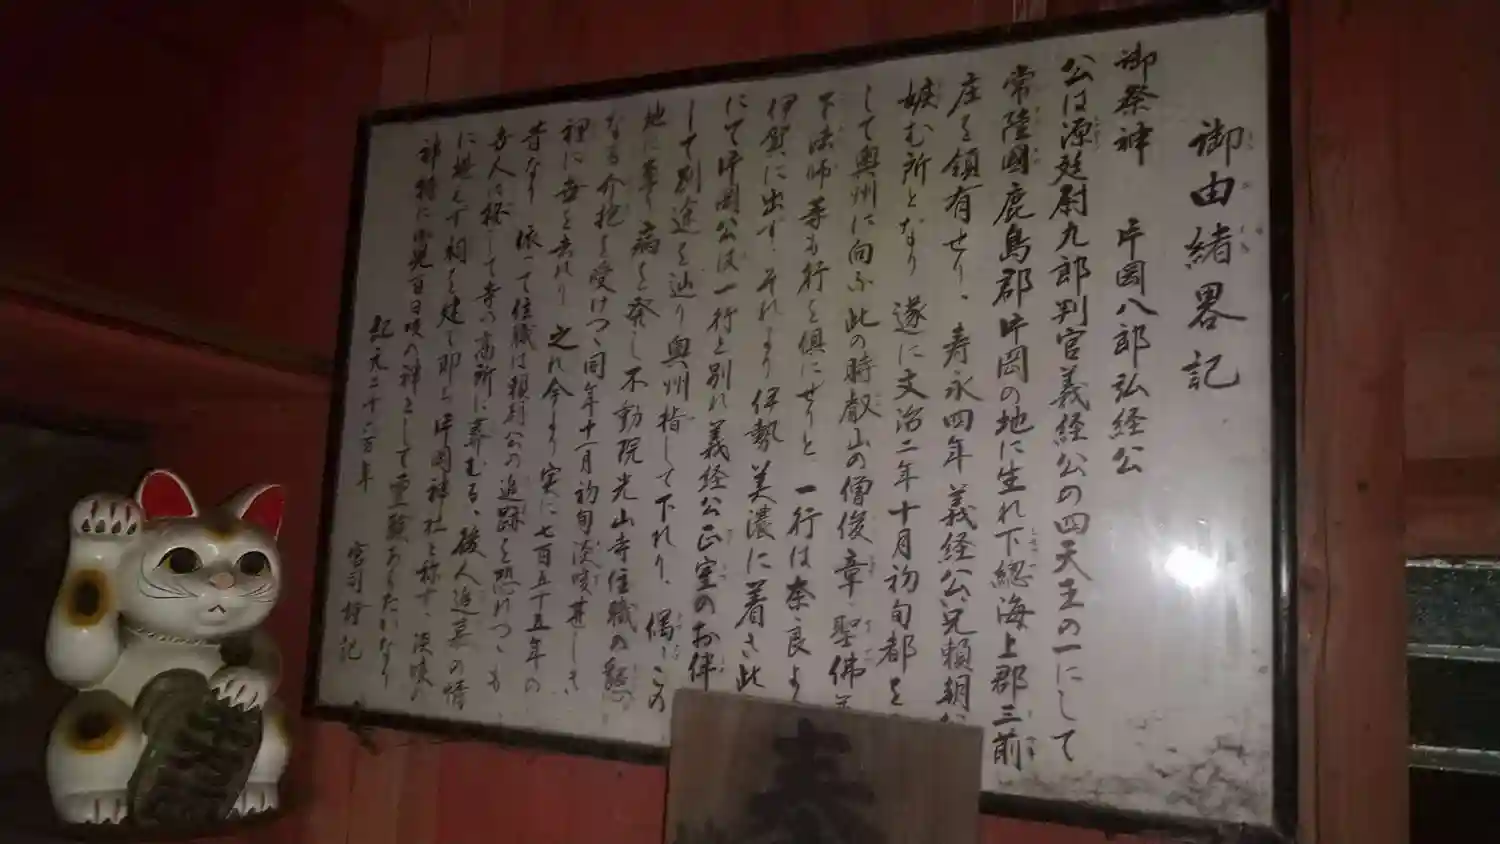 御由緒畧記
御祭神 片岡八郎弘経公
公は源廷尉九郎判官義経公の四天王の一にして
常陸國鹿島郡片岡の地に生れ下総海上郡三前
庄を領有せり、寿永四年義経公兄頼朝公
嫉む所となり 遂に文治二年十月初旬都を
して奥州に向ふ此の時叡山の僧俊章、聖佛
下法師等も行を倶にせりと 一行は奈良よ
伊賀に出ず、それより伊勢 美濃に着き此
にて片岡公は一行と別れ義経公正室のお伴
して別途を辿り奥州指して下れり、偶、この
地に 病を発し不動院光山寺住職の懇
なる介抱を受けつゝ同年十一月初旬淡咳甚しき
裡に世を去れり 之れ今より実に七百五十五年の
昔なり 依って住職は頼朝公の追跡を恐れつゝも
寺人に 寺の高所に葬むる、後人追慕の情
に堪えず祠を建て即ち片岡神社と称す、淡咳の
神特に 百日咳の神として霊験あらたかなり
紀元二千六百年 宮司 記
奉